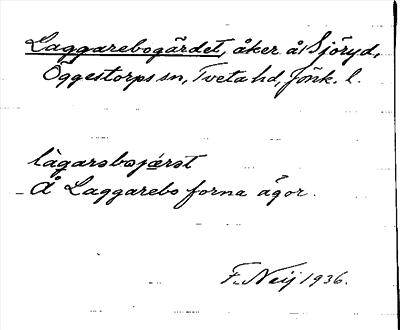 Laggarebogärdet, åker å Sjöryd,
Öggestorps sn, Tveta hd, Jönk. l.
làgarəbojæ̀rət
Å Laggarebo forna ägor.
F. Neij 1936.